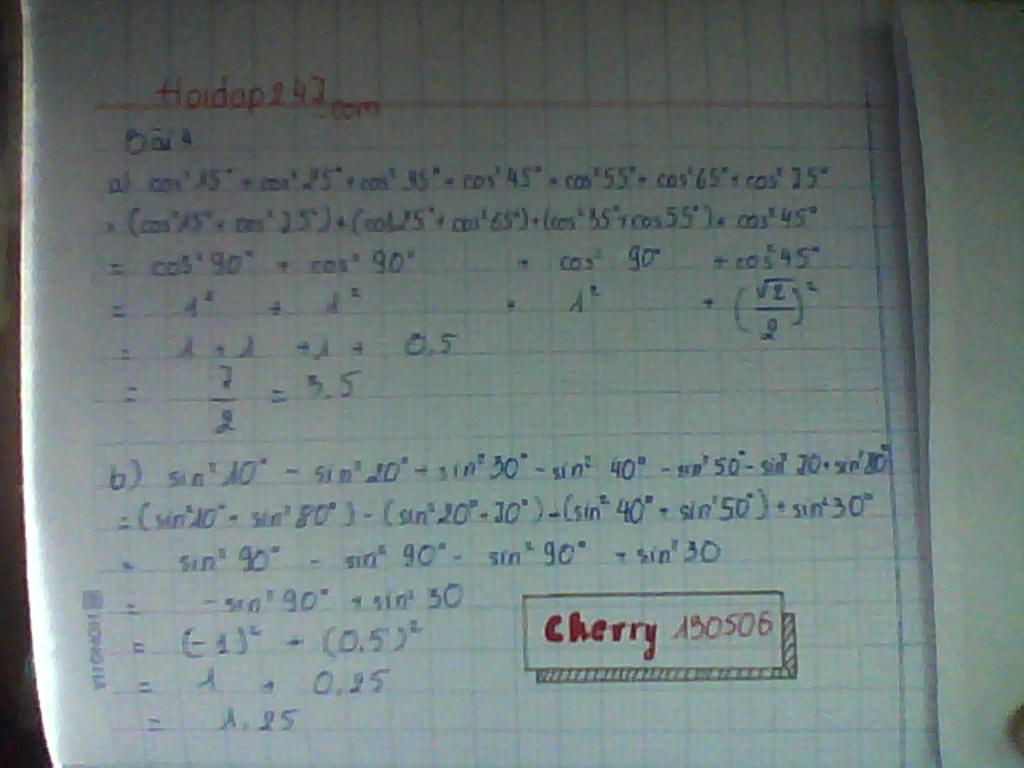 Hoidap247.com
Bài 4
a) cos²15° + cos²25° + cos²35° + cos²45° + cos²55° + cos²65° + cos²75°
= (cos²15° + cos²75°) + (cos²25° + cos²65°) + (cos²35° + cos55°) + cos²45°
= cos²90° + cos²90° + cos²90° + cos²45°
= 1² + 1² + 1² + (√2/2)²
= 1 + 1 + 1 + 0,5
= 7/2 = 3,5
b) sin²10° - sin²20° + sin²30° - sin²40° - sin²50° - sin²70 + sin²80°
= (sin²10° + sin²80°) - (sin²20° + 70°) - (sin²40° + sin²50°) + sin²30°
= sin²90° - sin²90° - sin²90° + sin²30
= -sin²90° + sin²30
= (-1)² + (0,5)²
= 1 + 0,25
= 1,25
Cherry 190506